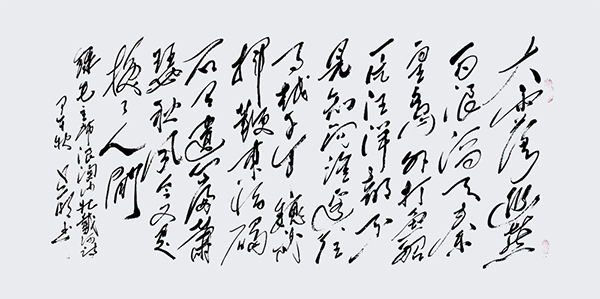 大雨落幽燕
白浪滔天秦
皇岛外打鱼船
一片汪洋都不
见知向谁边往
事越千年魏武
挥鞭东临碣
石有遗篇萧
瑟秋风今又是
换了人间
录毛主席浪淘沙北戴河
秋 书